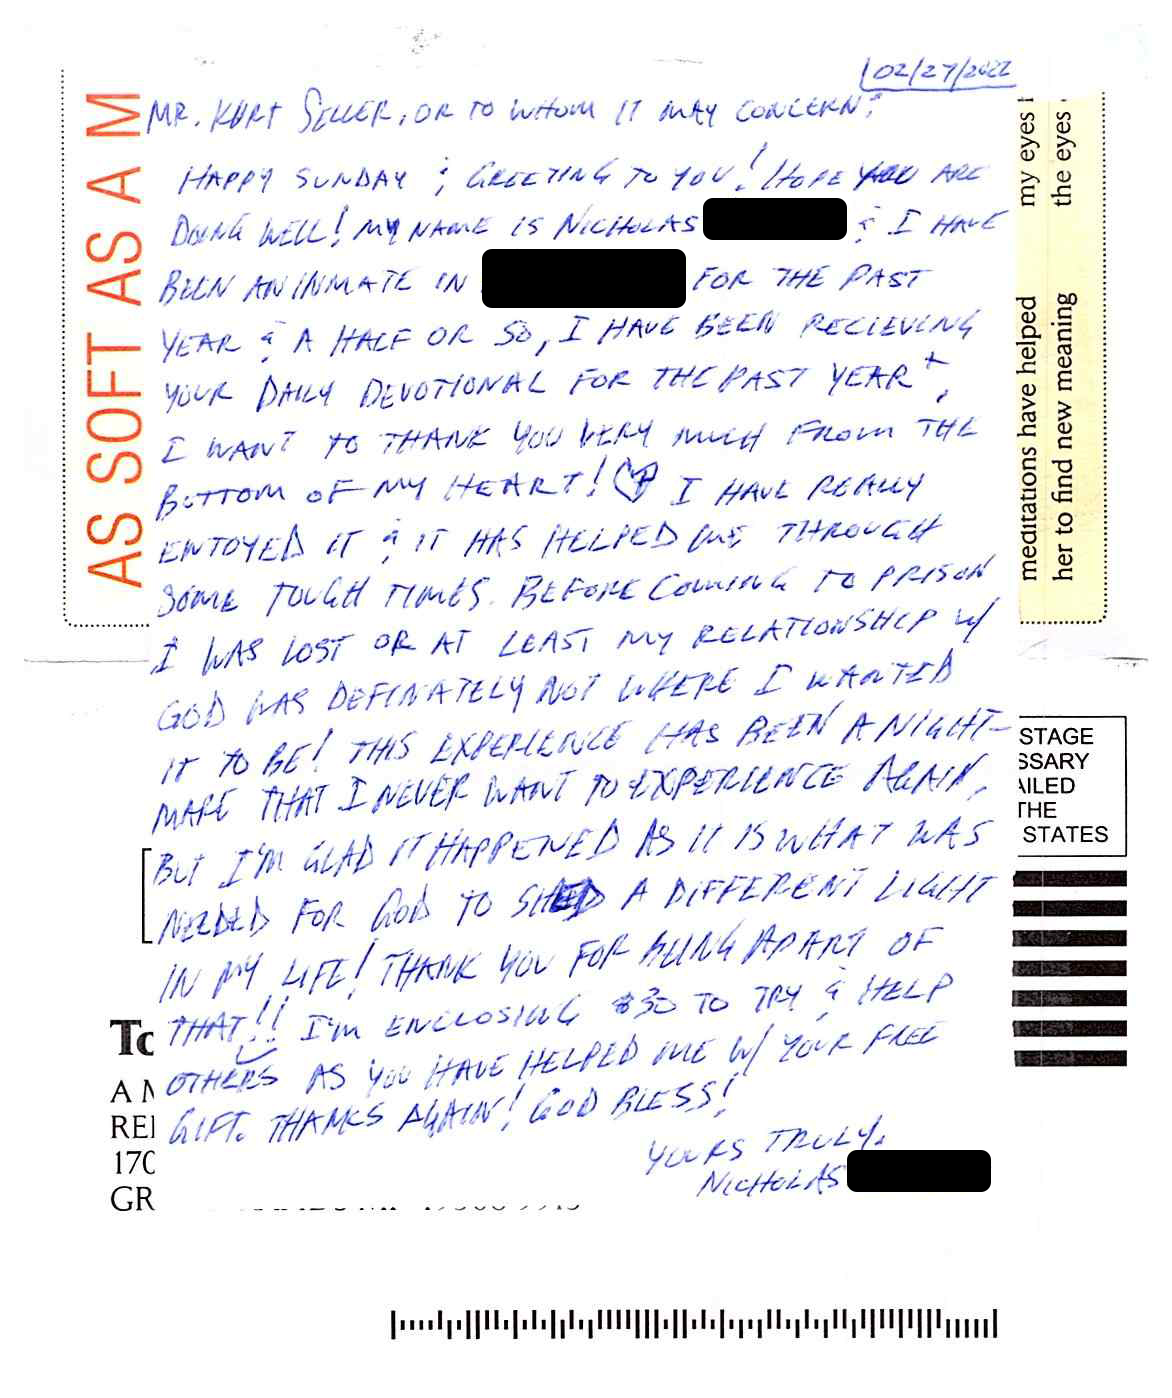 02/27/2022
MR. KURT SELLER, OR TO WHOM IT MAY CONCERN:
HAPPY SUNDAY & GREETING TO YOU! HOPE YOU ARE
DOING WELL! MY NAME IS NICHOLAS & I HAVE
BEEN AN INMATE IN FOR THE PAST
YEAR & A HALF OR SO, I HAVE BEEN RECIEVING
YOUR DAILY DEVOTIONAL FOR THE PAST YEAR+,
I WANT TO THANK YOU VERY MUCH FROM THE
BOTTOM OF MY HEART! I HAVE REALLY
ENJOYED IT & IT HAS HELPED ME THROUGH
SOME TOUGH TIMES. BEFORE COMING TO PRISON
I WAS LOST OR AT LEAST MY RELATIONSHIP W/
GOD WAS DEFINATELY NOT WHERE I WANTED
IT TO BE! THIS EXPERIENCE HAS BEEN A NIGHT-
MARE THAT I NEVER WANT TO EXPERIENCE AGAIN,
BUT I'M GLAD IT HAPPENED AS IT IS WHAT WAS
NEEDED FOR GOD TO SHED A DIFFERENT LIGHT
IN MY LIFE! THANK YOU FOR BEING APART OF
THAT!! I'M ENCLOSING $30 TO TRY & HELP
OTHERS AS YOU HAVE HELPED ME W/ YOUR FREE
GIFT. THANKS AGAIN! GOD BLESS!
YOURS TRULY,
NICHOLAS
AS SOFT AS A M
my eyes
the eyes
meditations have helped
her to find new meaning
STAGE
SSARY
AILED
THE
STATES
To
A M
REI
170
GR